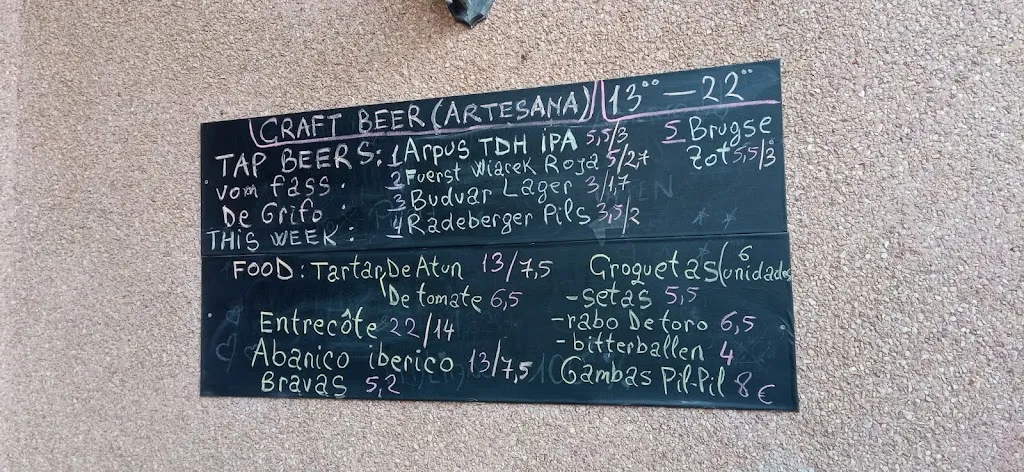 CRAFT BEER (ARTESANA) 13°° – 22°°
TAP BEERS: 1 Arpus TDH IPA 5,5/3
vom fass: 2 Fuerst Wiacek Roja 5/2,7
De Grifo: 3 Budvar Lager 3/1,7
THIS WEEK: 4 Radeberger Pils 3,5/2
5 Brugse
Zot 5,5/3
FOOD: Tartar De Atun 13/7,5
De tomate 6,5
Entrecôte 22/14
Abanico iberico 13/7,5
Bravas 5,2
Croquetas (6 unidades
-setas 5,5
-rabo De toro 6,5
-bitterballen 4
Gambas Pil-Pil 8 €